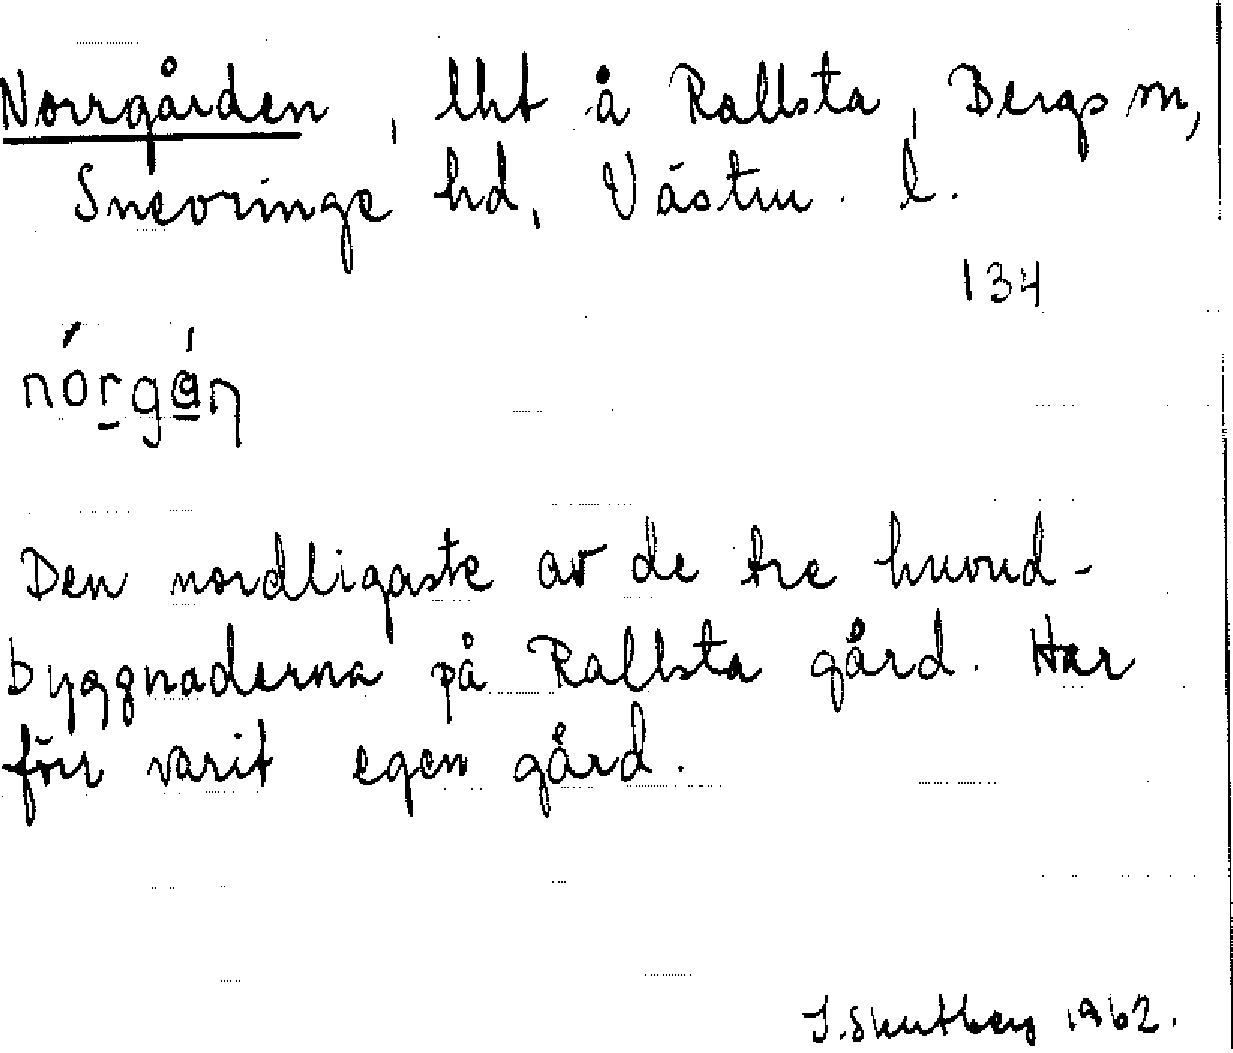 Norrgården, lht å Rallsta, Bergs sn,
Snevringe hd, Västm. l.
134
Den nordligaste av de tre huvud-
byggnaderna på Rallsta gård. Har
förr varit egen gård.
1962.